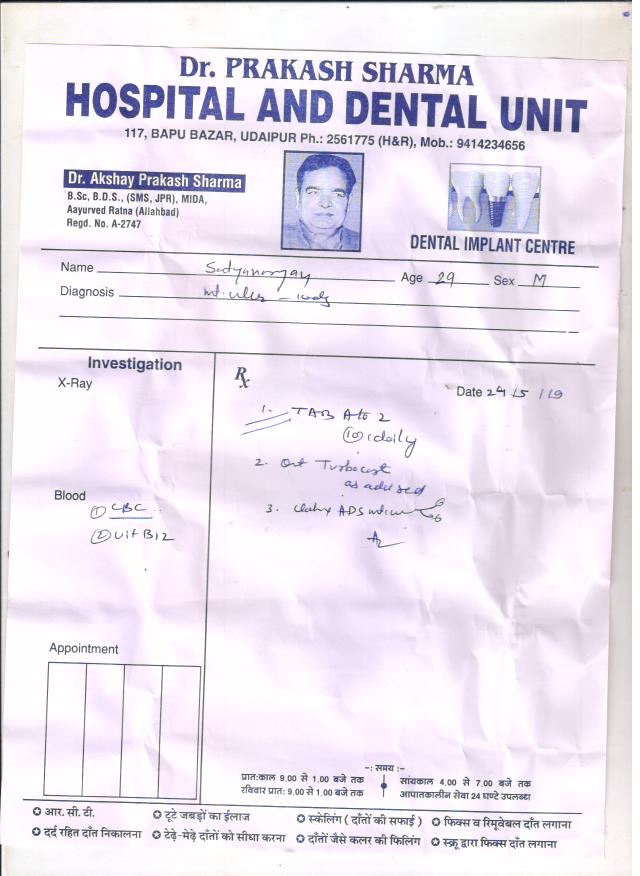 Dr. PRAKASH SHARMA
HOSPITAL AND DENTAL UNIT
117, BAPU BAZAR, UDAIPUR Ph.: 2561775 (H&R), Mob.: 9414234656
Dr. Akshay Prakash Sharma
B.Sc, B.D.S., (SMS, JPR), MIDA,
Aayurved Ratna (Allahbad)
Regd. No. A-2747
DENTAL IMPLANT CENTRE
Name Age 29 Sex M
Diagnosis
Investigation
X-Ray
Rx
Date 24/5/19
1. TAB A to 2
(10) 1 daily
2. Ont
as advised
3. ADS
Blood
① CBC
② Vit B12
Appointment
-: समय :-
प्रात:काल 9.00 से 1.00 बजे तक सांयकाल 4.00 से 7.00 बजे तक
रविवार प्रात: 9.00 से 1.00 बजे तक आपातकालीन सेवा 24 घण्टे उपलब्ध
✪ आर. सी. टी. ✪ टूटे जबड़ों का ईलाज ✪ स्केलिंग ( दाँतों की सफाई ) ✪ फिक्स व रिमूवेबल दाँत लगाना
✪ दर्द रहित दाँत निकालना ✪ टेढ़े-मेढ़े दाँतों को सीधा करना ✪ दाँतों जैसे कलर की फिलिंग ✪ स्क्रू द्वारा फिक्स दाँत लगाना